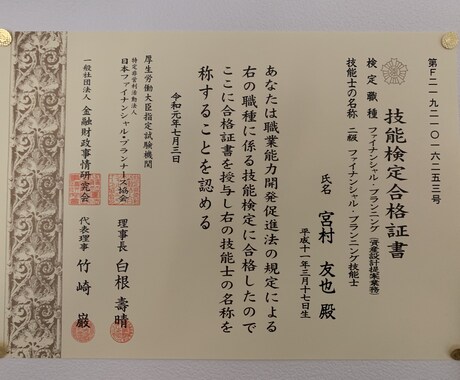 第F二一九二一〇一六二五三号
技能検定合格証書
検定職種 ファイナンシャル・プランニング(資産設計提案業務)
技能士の名称 二級 ファイナンシャル・プランニング技能士
氏名 宮村 友也 殿
平成十一年三月十七日生
あなたは職業能力開発促進法の規定による
右の職種に係る技能検定に合格したので
ここに合格証書を授与し右の技能士の名称を
称することを認める
令和元年七月三日
厚生労働大臣指定試験機関
特定非営利活動法人
日本ファイナンシャル・プランナーズ協会 理事長 白根 壽晴
一般社団法人 金融財政事情研究会 代表理事 竹崎 巌